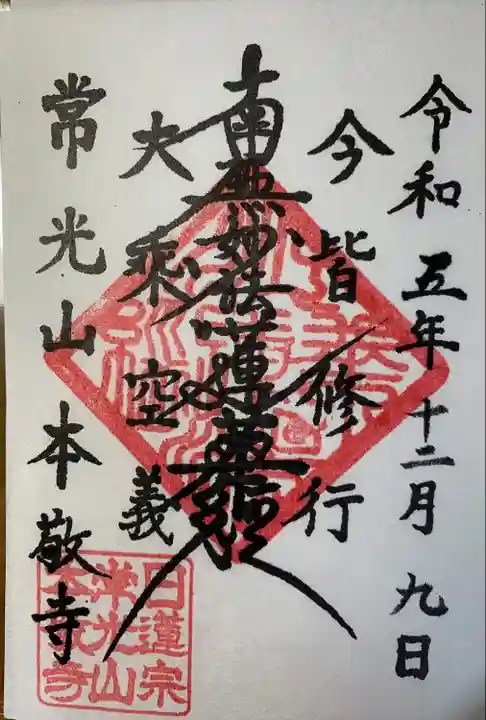 令和五年十二月九日
今皆修行
南無妙法蓮華経
大乗空義
常光山本敬寺
日蓮宗
常光山
本敬寺